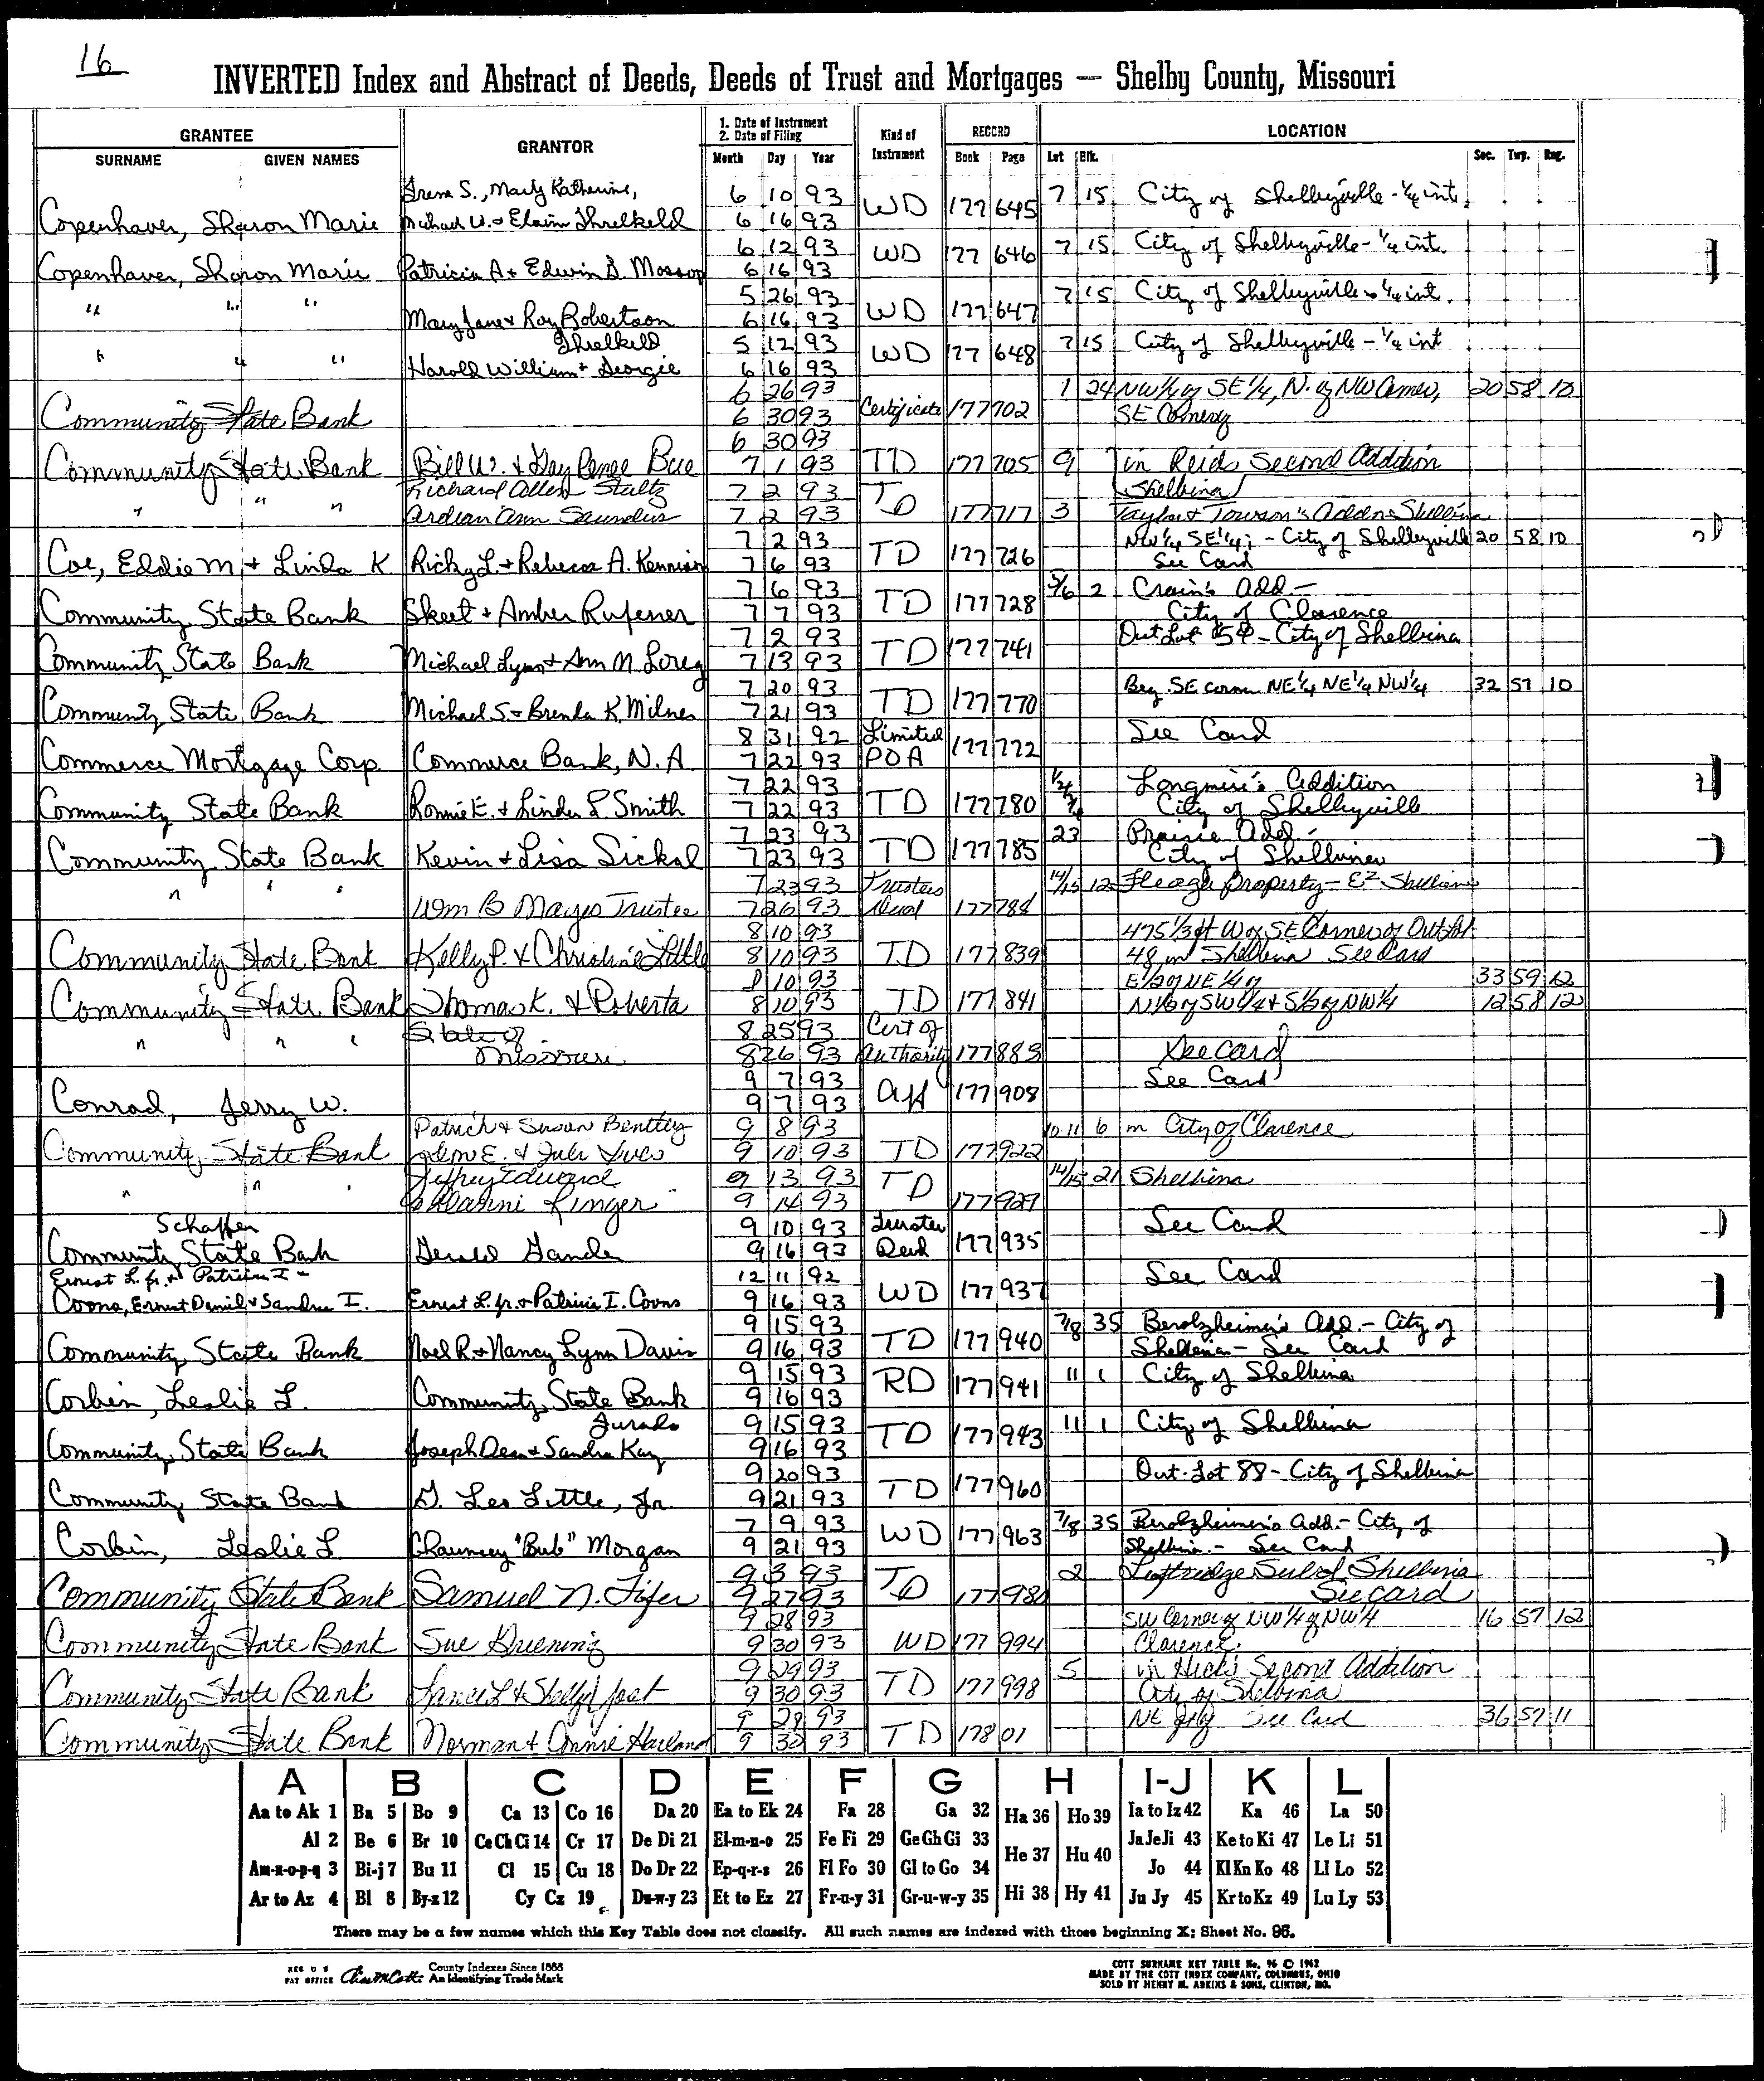 16
INVERTED Index and Abstract of Deeds, Deeds of Trust and Mortgages — Shelby County, Missouri
GRANTEE GRANTOR 1. Date of Instrument 2. Date of Filing Kind of Instrument RECORD LOCATION
SURNAME GIVEN NAMES Month Day Year Book Page Lot Blk. Sec. Twp. Rng.
Irene S., Marty Katherine, 6 10 93 7 15 City of Shelbyville - 1/4 int.
Copenhaver, Sharon Marie Michael W. + Elaine Threlkeld 6 16 93 WD 177 645
6 12 93 7 15 City of Shelbyville - 1/4 int.
Copenhaver, Sharon Marie Patricia A + Edwin D. Mossop 6 16 93 WD 177 646
" " " 5 26 93 7 15 City of Shelbyville - 1/4 int.
Mary Jane + Roy Robertson 6 16 93 WD 177 647
Threlkeld 5 12 93 7 15 City of Shelbyville - 1/4 int
" " " Harold William + Georgie 6 16 93 WD 177 648
6 26 93 1 24 NW 1/4 of SE 1/4, N. of NW Corner, 20 58 10
Community State Bank 6 30 93 Certificate 177 702 SE Corner
6 30 93
Community State Bank Bill W. + Gay Renee 7 1 93 TD 177 705 9 in Reids Second Addition
Richard Allen Stultz 7 2 93 Shelbina
" " " Ardean Ann Saunders 7 2 93 TD 177 717 3 Taylor & Towson's Addn Shelbina
7 2 93 NW 1/4 SE 1/4; - City of Shelbyville 20 58 10
Coe, Eddie M. + Linda K Ricky L. + Rebecca A. Kennison 7 6 93 TD 177 726 See Card
7 6 93 5/6 2 Crain's Add -
Community State Bank Skeet + Amber Rufener 7 7 93 TD 177 728 City of Clarence
7 2 93 Out Lot 54 - City of Shelbina
Community State Bank Michael Lynn + Ann M. 7 13 93 TD 177 741
7 20 93 Beg. SE corner NE 1/4 NE 1/4 NW 1/4 32 57 10
Community State Bank Michael S. + Brenda K. Milnes 7 21 93 TD 177 770
8 31 92 Limited See Card
Commerce Mortgage Corp. Commerce Bank, N.A 7 22 93 POA 177 772
7 22 93 Longmire's Addition
Community State Bank Ronnie E. + Linda L. Smith 7 22 93 TD 177 780 City of Shelbyville
7 23 93 23 Prairie Add -
Community State Bank Kevin + Lisa Sickal 7 23 93 TD 177 785 City of Shelbina
" " " 7 23 93 Trustees 14/15 12 Fleagle property - Shelbina
Wm B Mayes Trustee 7 26 93 Deed 177 788
8 10 93 475 1/3 ft W of SE Corner of Outlot
Community State Bank Kelly P. & Christine Little 8 10 93 TD 177 839 48 in Shelbina See Card
8 10 93 E 1/2 of NE 1/4 of 33 59 12
Community State Bank Thomas K. & Roberta 8 10 93 TD 177 841 N 1/2 of SW 1/4 + S 1/2 of NW 1/4 12 58 12
" " " State of 8 25 93 Cert of
Missouri 8 26 93 Authority 177 883 See Card
9 7 93 See Card
Conrad, Jerry W. 9 7 93 Aff 177 908
Patrick + Susan Bentley 9 8 93 10-11 6 in City of Clarence
Community State Bank E. & Julie Ives 9 10 93 TD 177 922
" " " Jeffrey Edward 9 13 93 14/15 21 Shelbina
Ringer 9 14 93 TD 177 929
Schaffer 9 10 93 Trustee See Card
Community State Bank Gerald Gander 9 16 93 Deed 177 935
Ernest L. Jr. + Patricia I - 12 11 92 See Card
Coons, Ernest Daniel + Sandra I. Ernest L. Jr. + Patricia I. Coons 9 16 93 WD 177 937
9 15 93 7/8 35 Berolzheimer's Add. - City of
Community State Bank Noel R. + Nancy Lynn Davis 9 16 93 TD 177 940 Shelbina - See Card
9 15 93 11 1 City of Shelbina
Corbin, Leslie L. Community State Bank 9 16 93 RD 177 941
Jurado 9 15 93 11 1 City of Shelbina
Community State Bank Joseph Dean + Sandra Kay 9 16 93 TD 177 943
9 20 93 Out-Lot 88 - City of Shelbina
Community State Bank D. Leo Little, Jr. 9 21 93 TD 177 960
7 9 93 7/8 35 Berolzheimer's Add. - City of
Corbin, Leslie L Chauncey "Bub" Morgan 9 21 93 WD 177 963 Shelbina - See Card
9 3 93 2 Loftridge Sub of Shelbina
Community State Bank Samuel N. Fifer 9 27 93 TD 177 980 See Card
9 28 93 SW Corner of NW 1/4 of NW 1/4 16 57 12
Community State Bank Sue Gruening 9 30 93 WD 177 994 Clarence
9 29 93 5 in Hick's Second Addition
Community State Bank Lance L & Shelly Jost 9 30 93 TD 177 998 City of Shelbina
9 29 93 NE See Card 36 57 11
Community State Bank Norman + Connie Harland 9 30 93 TD 178 01
A B C D E F G H I-J K L
Aa to Ak 1 Ba 5 Bo 9 Ca 13 Co 16 Da 20 Ea to Ek 24 Fa 28 Ga 32 Ha 36 Ho 39 Ia to Iz 42 Ka 46 La 50
Al 2 Be 6 Br 10 Ce Ch Ci 14 Cr 17 De Di 21 El-m-n-o 25 Fe Fi 29 Ge Gh Gi 33 He 37 Hu 40 Ja Je Ji 43 Ke to Ki 47 Le Li 51
Am-n-o-p-q 3 Bi-j 7 Bu 11 Cl 15 Cu 18 Do Dr 22 Ep-q-r-s 26 Fl Fo 30 Gl to Go 34 Jo 44 Kl Kn Ko 48 Ll Lo 52
Ar to Az 4 Bl 8 By-z 12 Cy Cz 19 Du-w-y 23 Et to Ez 27 Fr-u-y 31 Gr-u-w-y 35 Hi 38 Hy 41 Ju Jy 45 Kr to Kz 49 Lu Ly 53
There may be a few names which this Key Table does not classify. All such names are indexed with those beginning X; Sheet No. 96.
REG U S PAT OFFICE County Indexes Since 1888
An Identifying Trade Mark
COTT SURNAME KEY TABLE No. 96 © 1962
MADE BY THE COTT INDEX COMPANY, COLUMBUS, OHIO
SOLD BY HENRY M. ADKINS & SONS, CLINTON, MO.